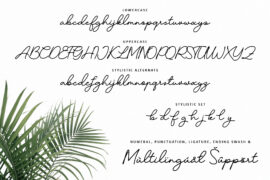 LOWERCASE
abcdefghijklmnopqrstuvwxyz
UPPERCASE
ABCDEFGHIJKLMNOPQRSTUVWXYZ
STYLISTIC ALTERNATE
abcdefghijklmnopqrstuvwxyz
STYLISTIC SET
b d f g h j k l y
NUMERAL, PUNCTUATION, LIGATURE, ENDING SWASH &
Multilingual Support